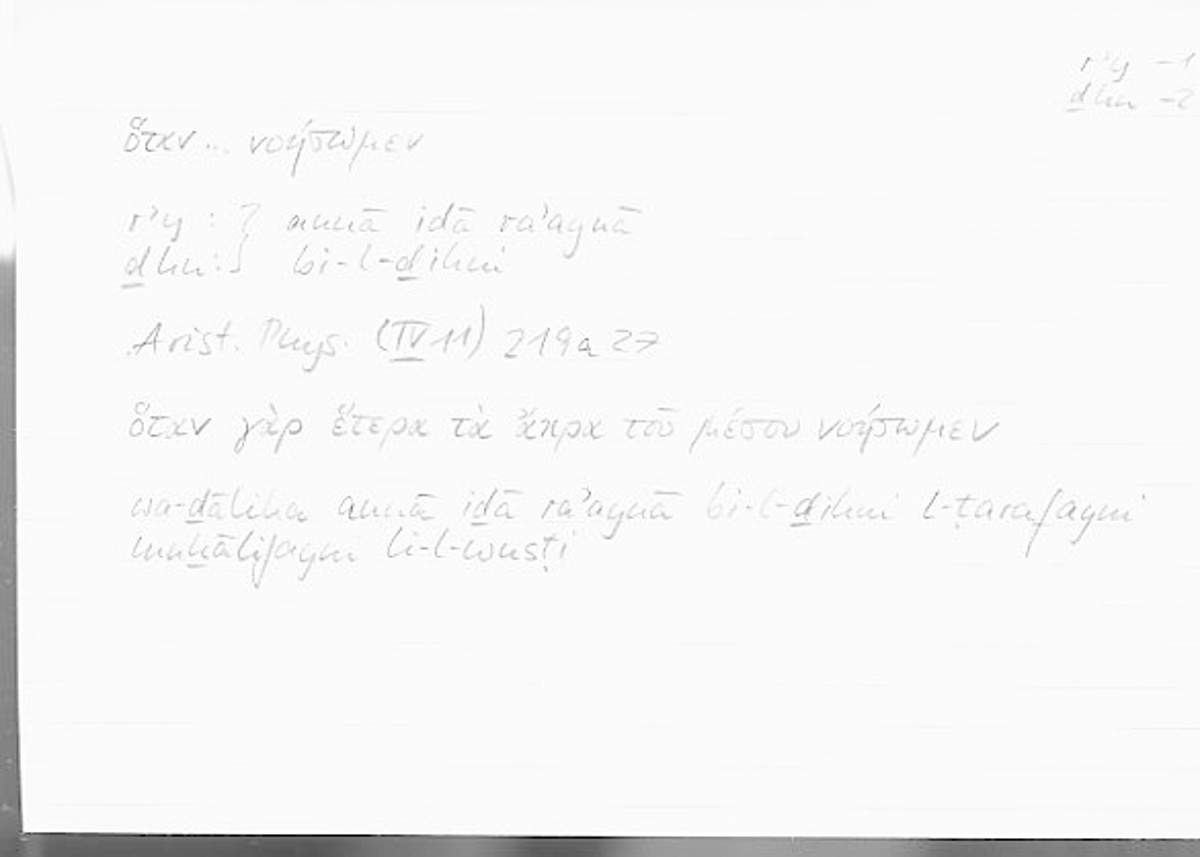 rʾy – 1
ḏhn – 2
ὅταν ... νοήσωμεν
rʾy : } annā iḏā raʾaynā
ḏhn : } bi-l-ḏihni
Arist. Phys. (IV 11) 219a 27
ὅταν γὰρ ἕτερα τὰ ἄκρα τοῦ μέσου νοήσωμεν
wa-ḏālika annā iḏā raʾaynā bi-l-ḏihni l-ṭarafayni
muḫālifayni li-l-wusṭi